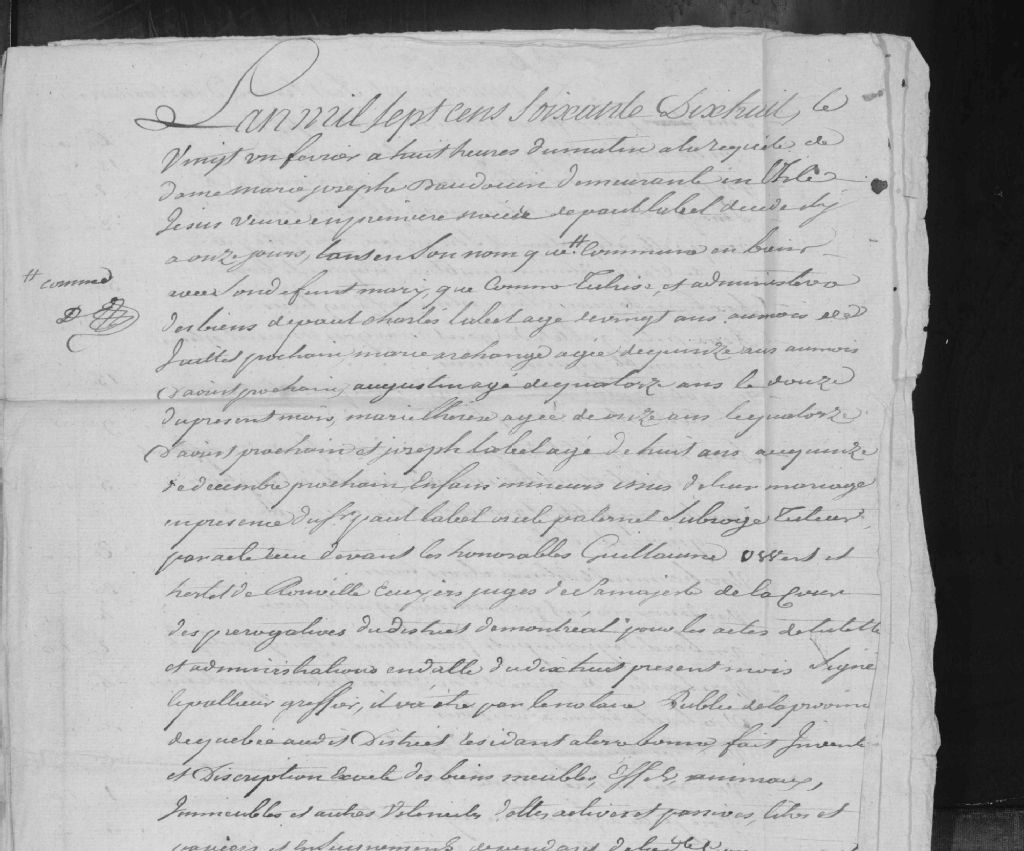 L'an mil sept cens soixante Dixhuit, le
Vingt un fevrier a huit heures du matin a la requete de
dame marie josephe Baudouin demeurante en l'Isle
Jesus veuve en premiere noices de paul label decedé
a onze jours, tant en son nom que # commune en biens
avec son defunt mary, que comme Tutrise, et administra
des biens de paul charles label agé de vingt ans au mois de
Juillet prochain, marie archange agée de quinze ans au mois
D'aoust prochain, augustin agé de quatorze ans le douze
du present mois, marie therese agée de onze ans le quatorze
D'aoust prochain et joseph label agé de huit ans au quinze
de decembre prochain, Enfans mineurs issus de leur mariage
en presence du sr. paul label oncle paternel subroge Tuteur,
par acte reçu devant les honorables Guillaume owen et
hertel de Rouville Ecuyers juges de Sa majesté de la Cour
des prerogatives du district de montréal pour les actes de tutelle
et administrations en datte du dix huit present mois Signé
lepallieur greffier, il va etre par le notaire Public de la province
de quebec audit District residant a terrebonne, fait Invent
et Discription Exacte des biens meubles, Effets, animaux,
Immeubles et autres Ustencils dettes actives et passives, titres et
papiers et Enseignements dependants de
# comme